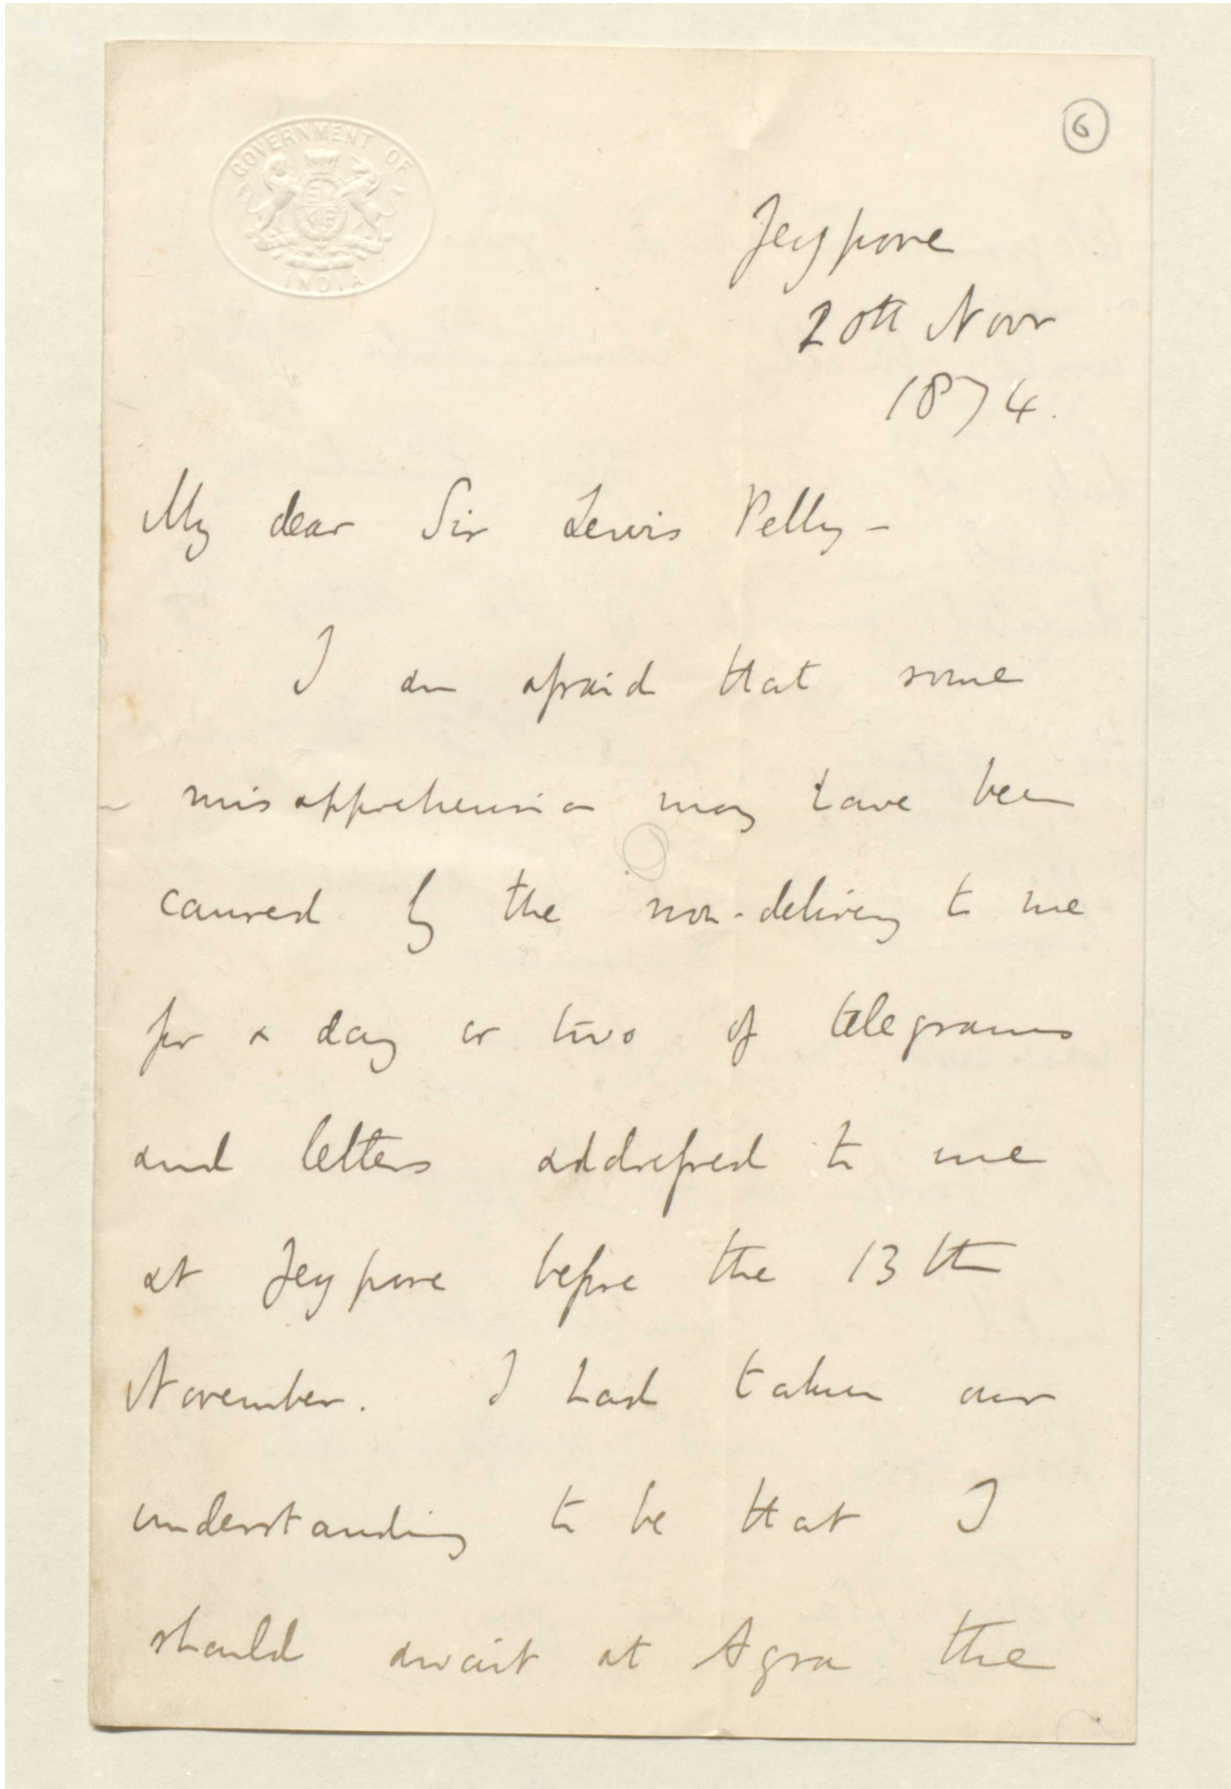 GOVERNMENT OF
INDIA
6
Jeypore
20th Novr
1874.
My dear Sir Lewis Pelly -
I am afraid that some
misapprehension may have been
caused by the non-delivery to me
for a day or two of telegrams
and letters addressed to me
at Jeypore before the 13th
November. I had taken our
understanding to be that I
should await at Agra the